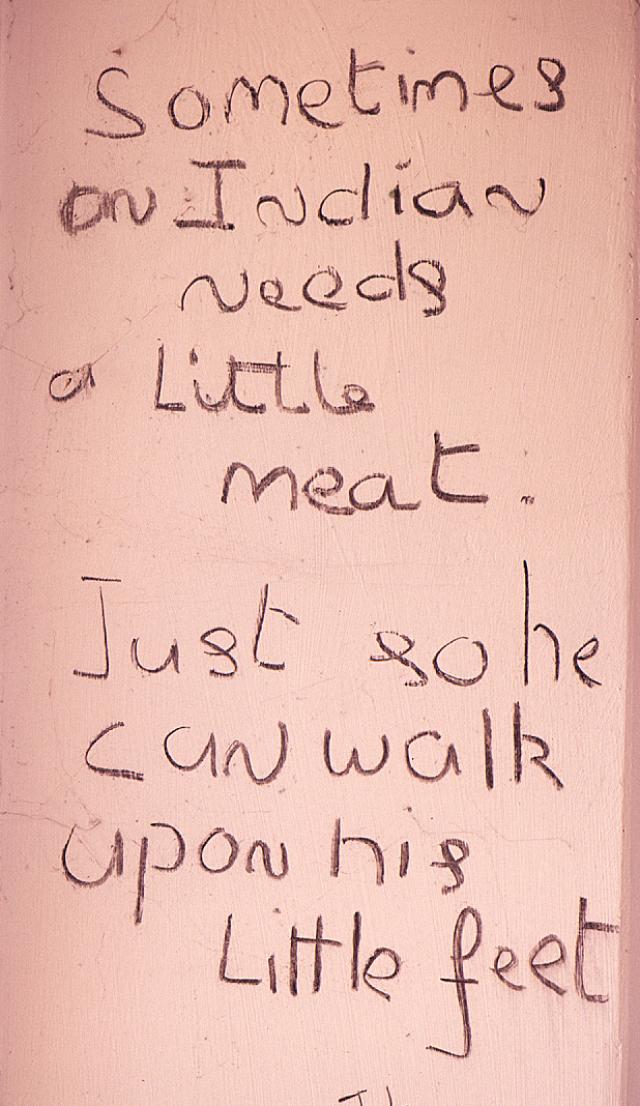 Sometimes
an Indian
needs
a Little
meat.
Just so he
can walk
upon his
Little feet